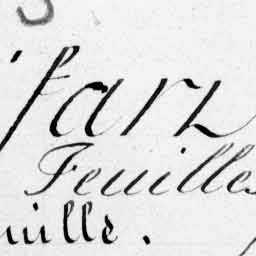 farz
Feuilles
uille.